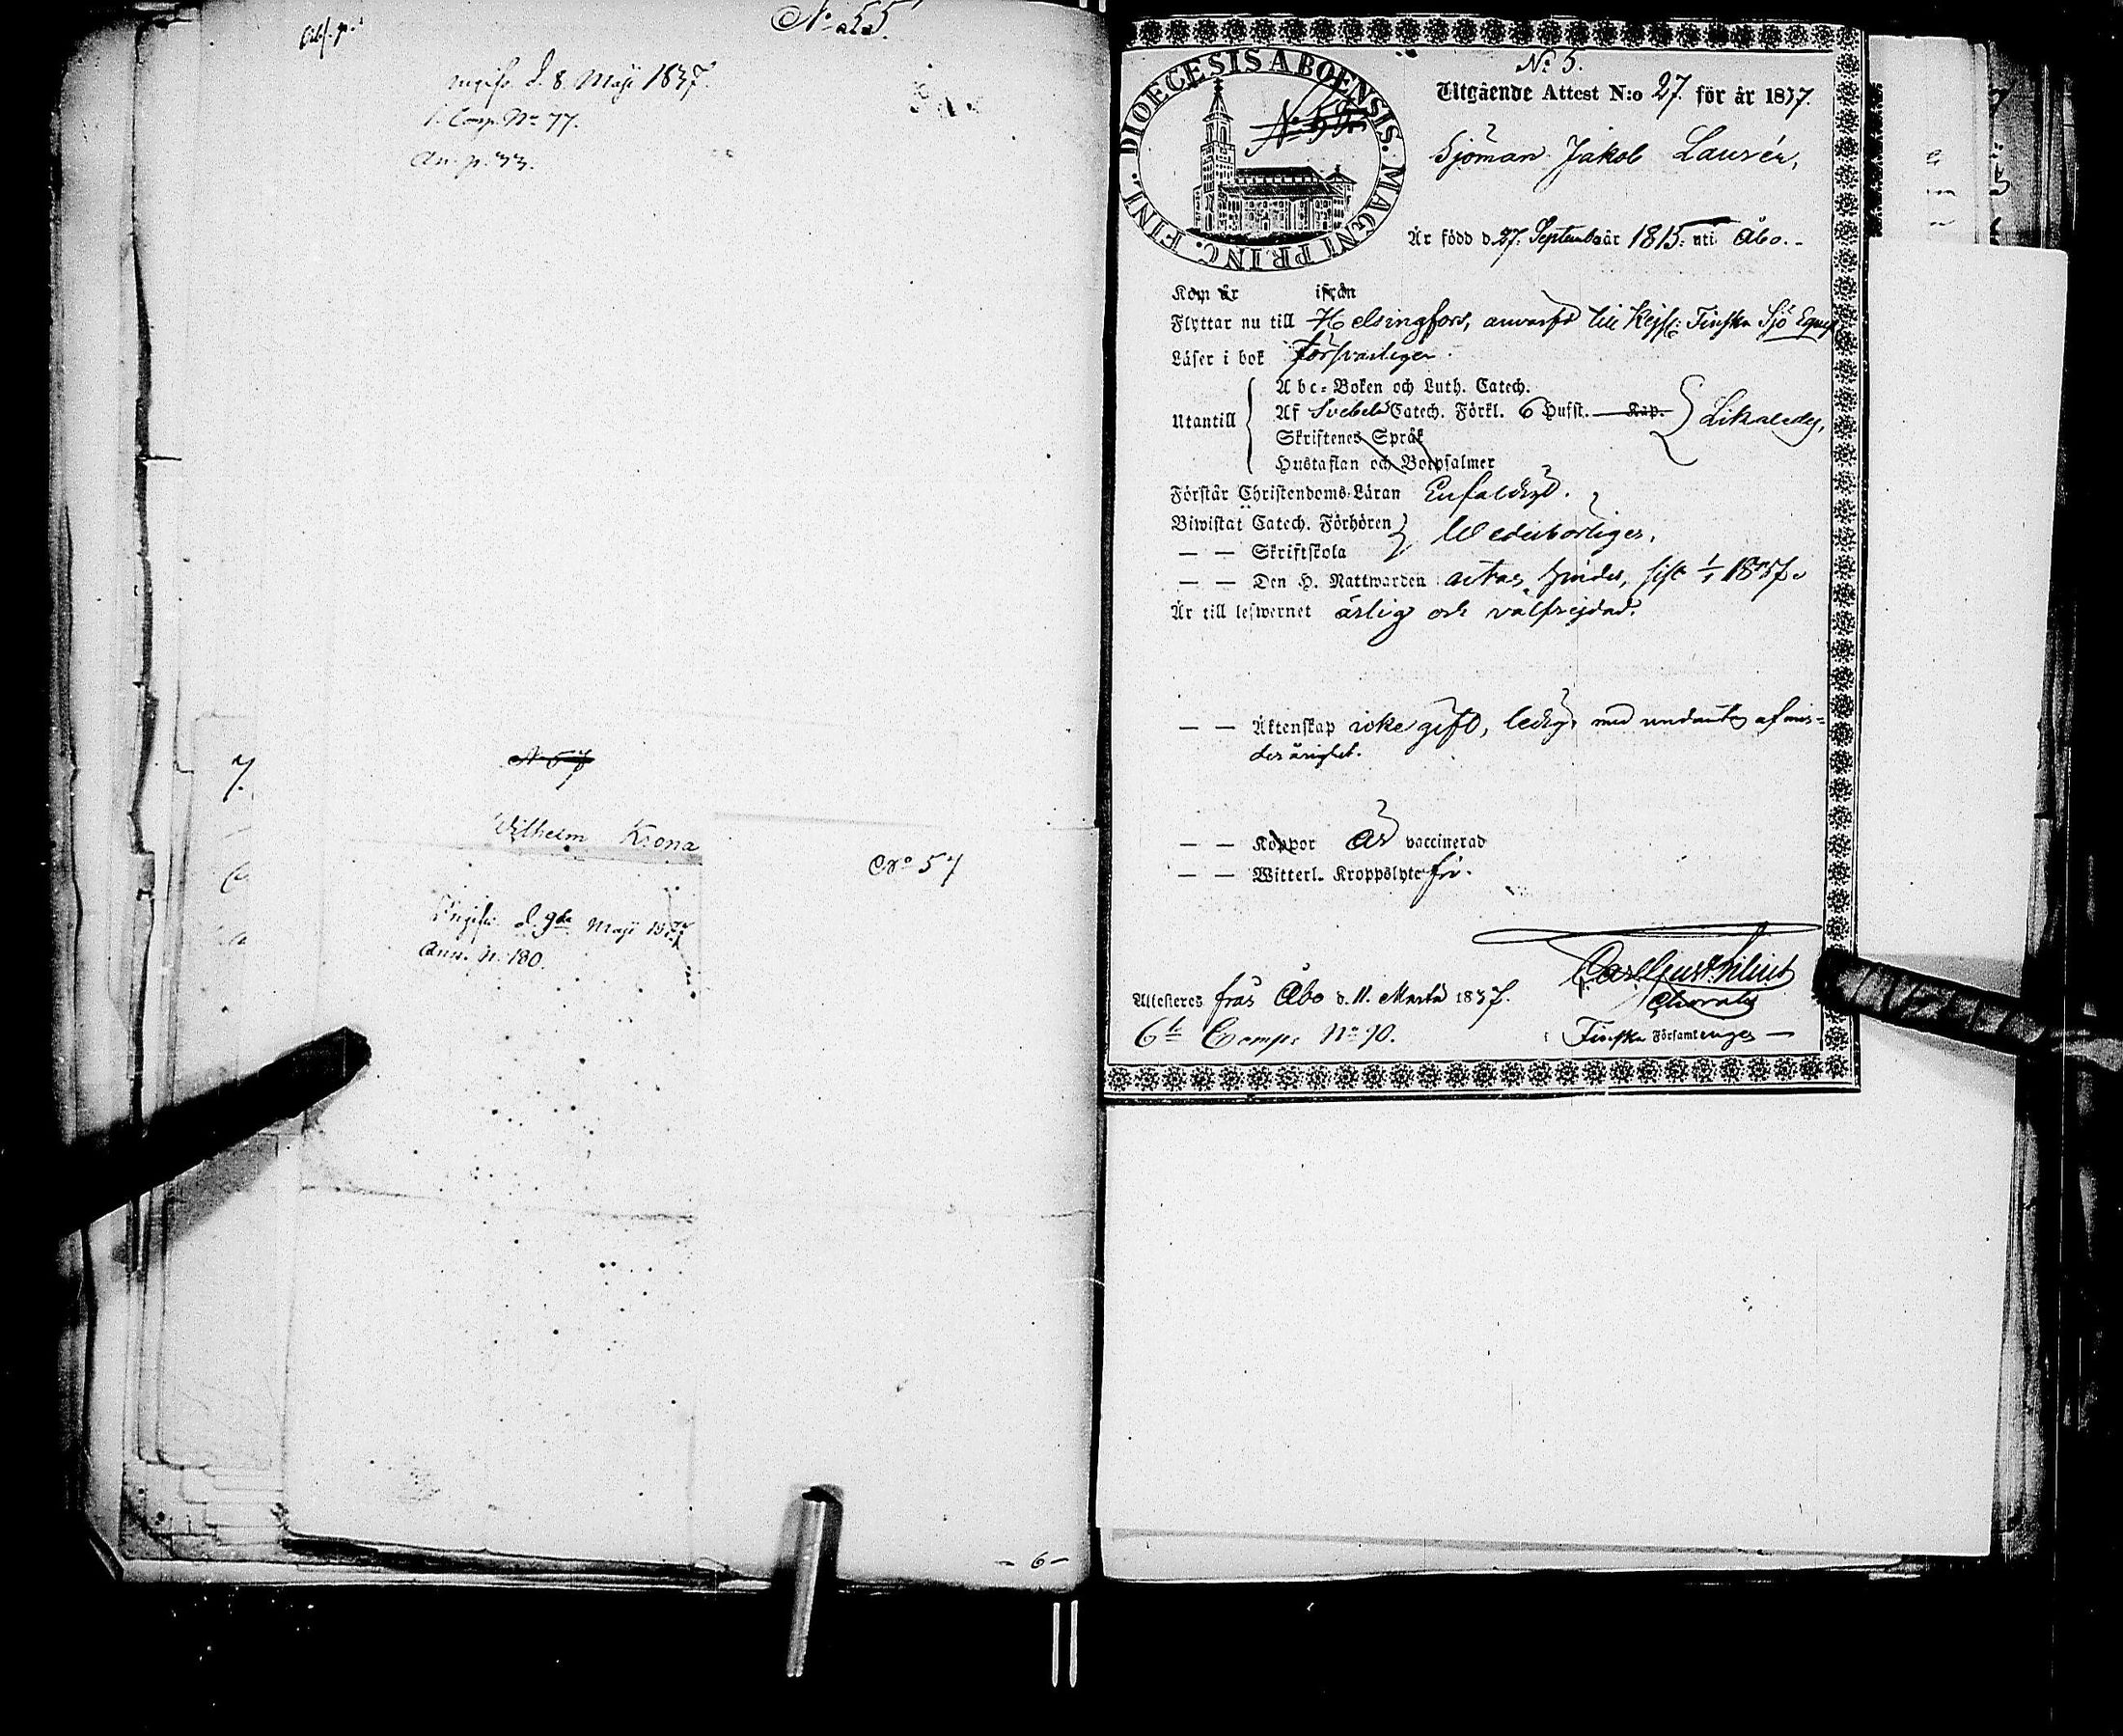 No 55.
d. 8 Maji 1837.
1. Comp. No 77.
An. p. 33.
No 57
Wilhelm Krona
No 57
d. 9de Maji 1837
Ann. p. 180.
- 6 -
DIOECESIS ABOENSIS. MAGNI PRINC. FINL.
No 5.
Utgående Attest N:o 27. för år 1837.
Sjöman Jakob Laurén,
Är född d. 27. September år 1815. uti Åbo.
Kom år ifrån
Flyttar nu till Helsingfors, anwärfd till Kejsl: Finska Sjö Equip
Läser i bok försvarligen.
Abc-Boken och Luth. Catech.
Utantill Af Svebelii Catech. Förkl. 6 Hufst. Kap. Likaledes,
Skriftenes Språk
Hustaflan och Botpsalmer
Förstår Christendoms-Läran Enfaldigt.
Biwistat Catech. Förhören
— — Skriftskola Wederbörligen,
— — Den H. Nattwarden sist 1/1 1837.
Är till lefwernet ärlig och välfrejdad.
— — Äktenskap icke gift, ledig, med undantag af min-
derårighet.
— — Koppor är vaccinerad
— — Witterl. Kroppslyte fri.
Attesteras från Åbo d. 11. Martii 1837.
6te Comp. No 90.
i Finska Församlingen —